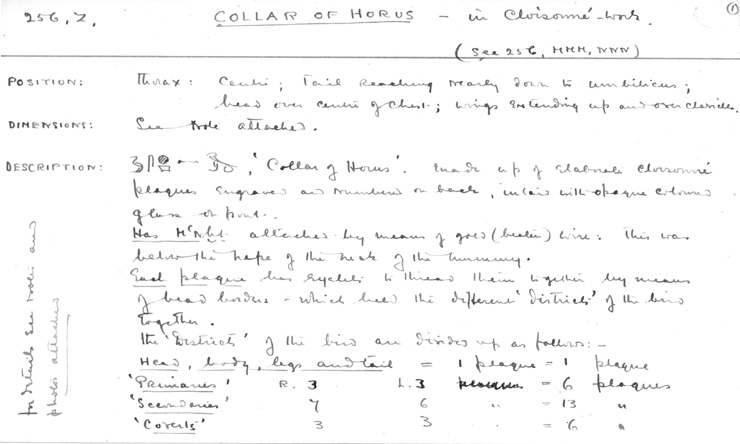 256, Z, COLLAR OF HORUS – in Cloisonné-work. ①
(See 256, HHH, NNN)
POSITION: Thorax: Centre; Tail reaching nearly down to umbilicus;
head over centre of chest; wings extending up and over clavicles.
DIMENSIONS: See note attached.
DESCRIPTION: 'Collar of Horus'. Made up of elaborate cloisonné
plaques engraved and numbered on back, inlaid with opaque coloured
glass on front.
Has Mᶜ attached by means of gold (beaten) wire: This was
below the nape of the neck of the mummy.
Each plaque has eyelets to thread them together by means
of bead borders – which held the different 'districts' of the bird
together.
The 'Districts' of the bird are divided up as follows: –
Head, body, legs and tail = 1 plaque = 1 plaque
'Primaries' R. 3 L. 3 = 6 plaques
'Secondaries' 7 6 " = 13 "
'Coverts' 3 3 " = 6 "
for details see notes and
photos attached